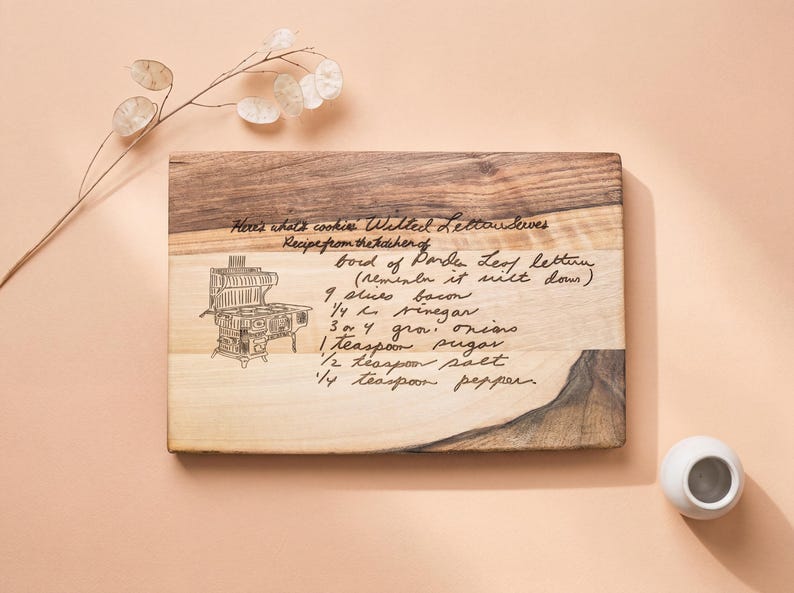 Here's what's cookin' Wilted Lettuce Serves
Recipe from the kitchen of
bowl of Leaf lettuce
(remember it wilt down)
9 slices bacon
1/4 c vinegar
3 or 4 gr. onions
1 teaspoon sugar
1/2 teaspoon salt
1/4 teaspoon pepper.